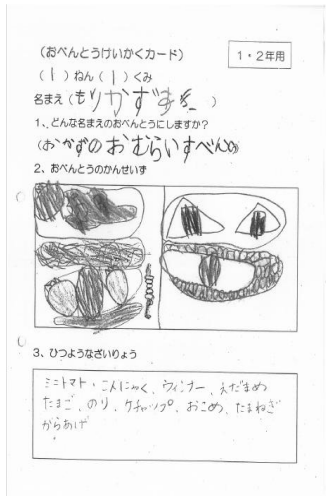 (おべんとうけいかくカード)
1・2年用
(1)ねん(1)くみ
名まえ(もりかずまさ)
1、どんな名まえのおべんとうにしますか?
(おかずのおむらいすべんとう)
2、おべんとうのかんせいず
3、ひつようなざいりょう
ミニトマト・こんにゃく、ウィンナー、えだまめ
たまご、のり、ケチャップ、おこめ、たまねぎ
からあげ